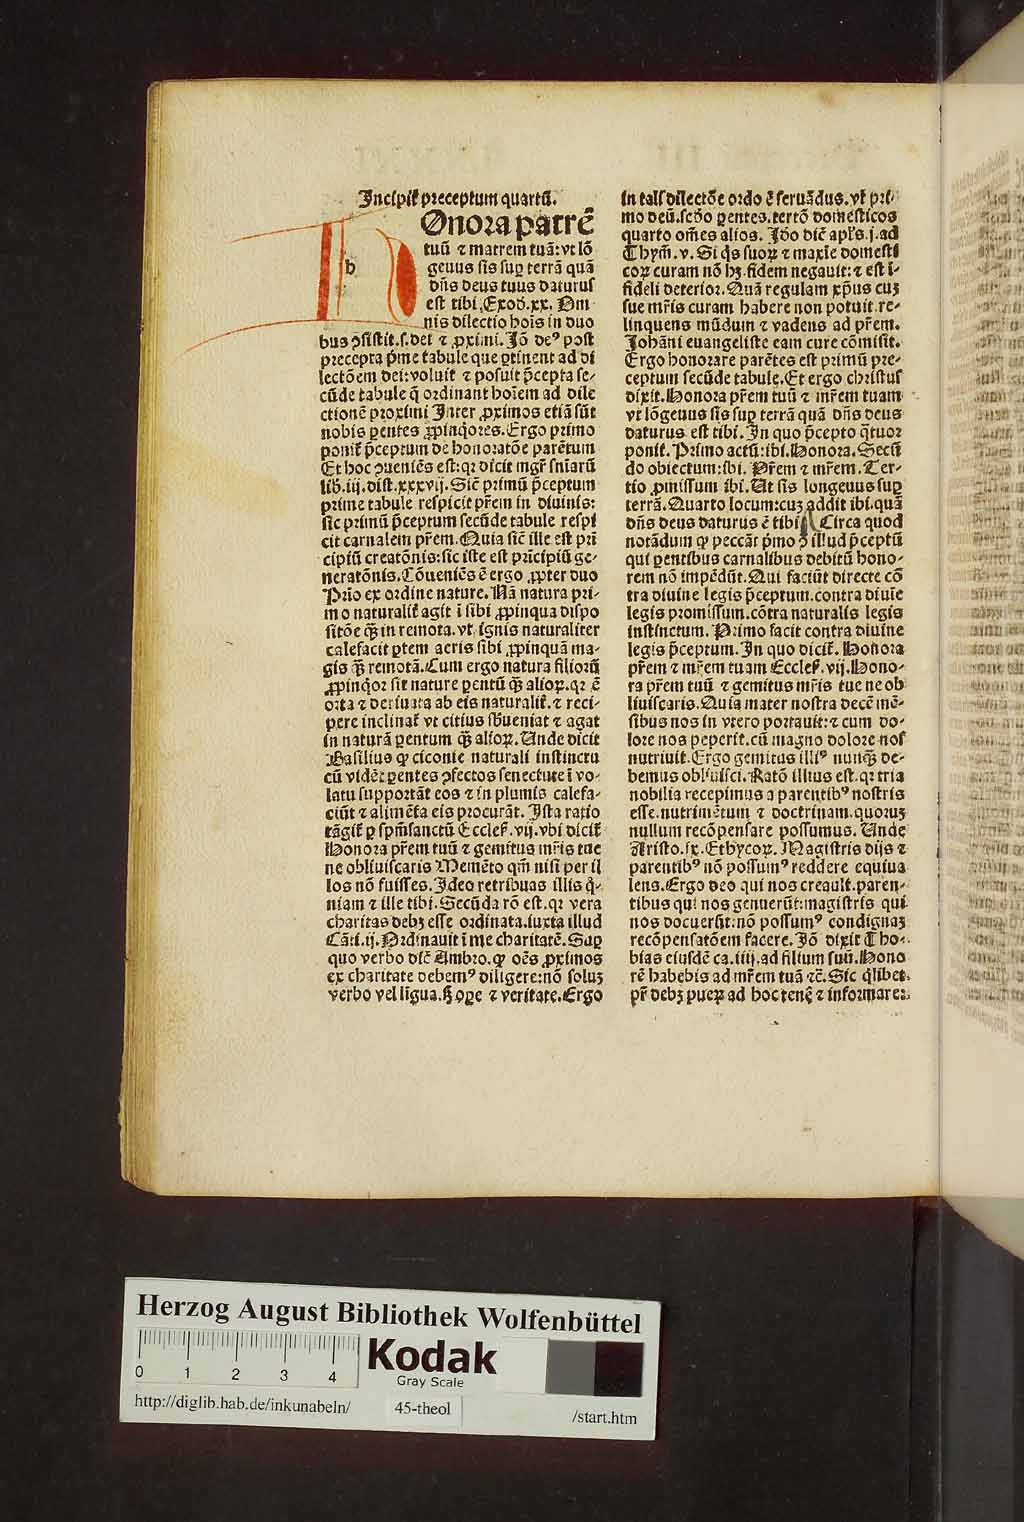 Incipit̃ preceptum quartū.
h
Onora patrē
tuū ⁊ matrem tuā: vt lō
geuus sis sup̱ terrā quā
dn̄s deus tuus daturus
est tibi. Exod̄. xx. Om
nis dilectio hoīs in duo
bus ꝯsistit. s. dei ⁊ ꝓximi. Iō deꝰ post
precepta pͥme tabule que ꝑtinent ad di
lectōem dei: voluit ⁊ posuit p̄cepta se-
cūde tabule q̄ ordinant hoīem ad dile
ctionē proximi Inter ꝓximos etiā sūt
nobis ꝑentes ꝓpinq̇ores. Ergo primo
ponit̃ p̄ceptum de honoratōe parētum
Et hoc ꝯueniēs est: qꝛ dicit mgr̄ sn̄iarū
lib̄. iij. dist. xxxvij. Sic̄ primū p̄ceptum
prime tabule respicit pr̄em in diuinis:
sic primū p̄ceptum secūde tabule respi
cit carnalem pr̄em. Quia sic̄ ille est prī
cipiū creatōnis: sic iste est prīcipiū ge-
neratōnis. Cōueniēs ē ergo ꝓpter duo
Prīo ex ordine nature. Nā natura pri-
mo naturalit̃ agit ī sibi ꝓpinqua dispo
sitōe q̄ꝫ in remota. vt ignis naturaliter
calefacit ꝑtem aeris sibi ꝓpinquā ma-
gis q̄ꝫ remotā. Cum ergo natura filiorū
ꝓpinq̇or sit nature ꝑentū q̄ꝫ alioꝝ. qꝛ ē
orta ⁊ deriuata ab eis naturalit̃. ⁊ reci-
pere inclinat̃ vt citius sb̄ueniat ⁊ agat
in naturā ꝑentum q̄ꝫ alioꝝ. Unde dicit
Basilius ꝙ ciconie naturali instinctu
cū vidēt ꝑentes ꝯfectos senectute ī vo-
latu supportāt eos ⁊ in plumis calefa-
ciūt ⁊ alimēta eis procurāt. Ista ratio
tāgit̃ ꝑ sp̄msanctū Eccles̄. vij. vbi dicit̃
Honora pr̄em tuū ⁊ gemitus mr̄is tue
ne obliuiscaris Memēto qm̄ nisi per il
los nō fuisses. Ideo retribuas illis q̄-
niam ⁊ ille tibi. Secūda rō est. qꝛ vera
charitas debꝫ esse ordinata. iuxta illud
Cāti. ij. Ordinauit ī me charitatē. Sup̱
quo verbo dic̄ Ambro. ꝙ oēs ꝓximos
ex charitate debemꝰ diligere: nō soluꝫ
verbo vel līgua. sꝫ oꝑe ⁊ veritate. Ergo
in tali dilectōe ordo ē seruādus. vt pri-
mo deū. scd̄o ꝑentes. tertō domesticos
quarto om̄es alios. Iō dic̄ apl̄s. j. ad
Thym̄. v. Si q̇s suoꝝ ⁊ maxīe domesti
coꝝ curam nō hꝫ. fidem negauit: ⁊ est ī-
fideli deterior. Quā regulam xp̄us cuꝫ
sue mr̄is curam habere non potuit. re-
linquens mūdum ⁊ vadens ad pr̄em.
Iohāni euangeliste eam cure cōmisit.
Ergo honorare parētes est primū pre-
ceptum secūde tabule. Et ergo christus
dixit. Honora pr̄em tuū ⁊ mr̄em tuam
vt lōgeuus sis sup̱ terrā quā dn̄s deus
daturus est tibi. In quo p̄cepto q̄tuor
ponit̃. Primo actū: ibi. Honora. Secū
do obiectum: ibi. Pr̄em ⁊ mr̄em. Ter-
tio ꝓmissum ibi. Ut sis longeuus sup̱
terrā. Quarto locum: cuꝫ addit ibi. quā
dn̄s deus daturus ē tibi. Circa quod
notādum ꝙ peccāt pͥmo ꝯ illud p̄ceptū
qui ꝑentibus carnalibus debitū hono-
rem nō impēdūt. Qui faciūt directe cō
tra diuine legis p̄ceptum. contra diuīe
legis promissum. cōtra naturalis legis
instinctum. Primo facit contra diuine
legis p̄ceptum. In quo dicit̃. Honora
pr̄em ⁊ mr̄em tuam Eccles̄. vij. Hono-
ra pr̄em tuū ⁊ gemitus mr̄is tue ne ob
liuiscaris. Quia mater nostra decē mē-
sibus nos in vtero portauit: ⁊ cum do-
lore nos peperit. cū magno dolore nos
nutriuit. Ergo gemitus illiꝰ nunq̄ꝫ de-
bemus obliuisci. Ratō illius est. qꝛ tria
nobilia recepimus a parentibꝰ nostris
esse. nutrimētum ⁊ doctrinam. quoruꝫ
nullum recōpensare possumus. Unde
Aristo. ix. Ethycoꝝ. Magistris dijs ⁊
parentibꝰ nō possumꝰ reddere equiua
lens. Ergo deo qui nos creauit. paren-
tibus qui nos genuerūt: magistris qui
nos docuerūt: nō possumꝰ condignaꝫ
recōpensatōem facere. Iō dixit Tho-
bias eiusdē ca. iiij. ad filium suū. Hono
rē habebis ad mr̄em tuā ⁊c̄. Sic q̇libet
pr̄ debꝫ pueꝝ ad hoc tenē ⁊ informare:
Herzog August Bibliothek Wolfenbüttel
0 1 2 3 4
Kodak
Gray Scale
http://diglib.hab.de/inkunabeln/
45-theol
/start.htm